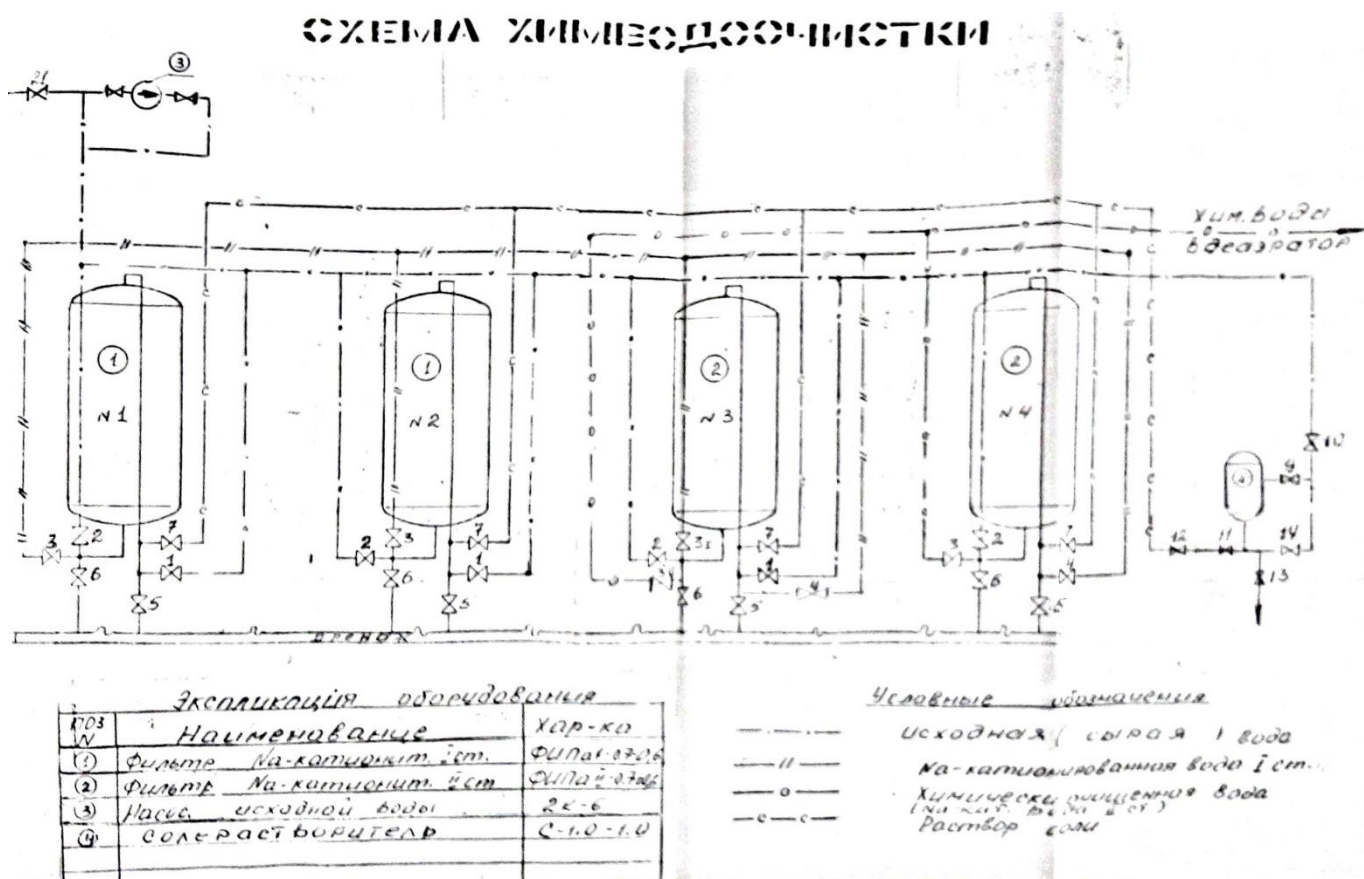 СХЕМА ХИМВОДООЧИСТКИ
21
3
ХИМ. ВОДЫ
В ДЕАЭРАТОР
1 1 2 2
N1 N2 N3 N4
10
9
3 2 7 2 3 7 2 7 3 2 12 11 14
6 1 6 1 6 1 4 6 4 13
5 5 5 5
дренаж
Экспликация оборудования
ПОЗ N Наименование Хар-ка
1 Фильтр Na-катионит. I ст.
2 Фильтр Na-катионит. II ст
3 Насос исходной воды 2К-6
4 Солерастворитель С-1.0-1.0
Условные обозначения
исходная (сырая) вода
Na-катионированная вода I ст.
Химически очищенная вода
Раствор соли